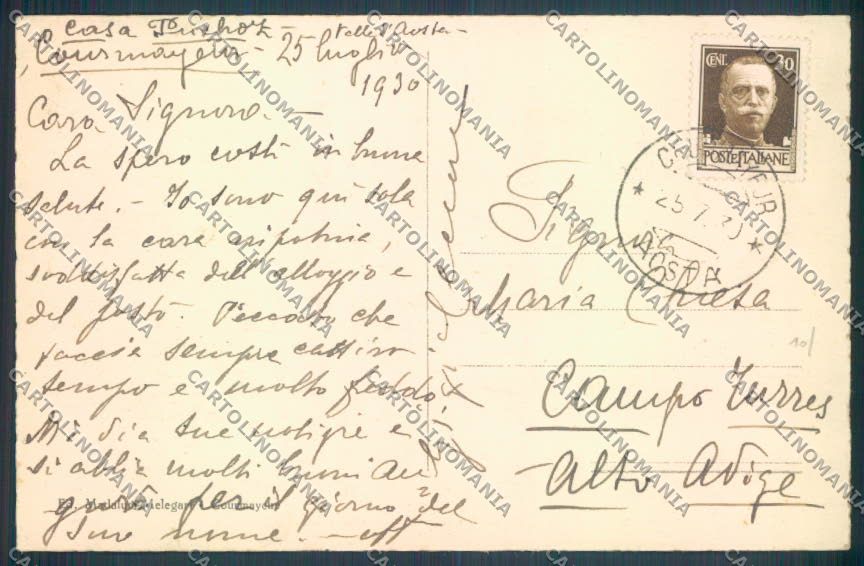 Casa
Valle d'Aosta -
Courmayeur - 25 luglio
1930
Cara Signora -
La spero costì in buona
salute. - Io sono qui sola
con la cara nipotina,
soddisfatta dell'alloggio e
del posto. Peccato che
faccia sempre cattivo
tempo e molto freddo,
Mi dia sue notizie e
si abbia molti buoni au
guri per il giorno del
suo nome. - aff
CENT. 30
POSTE ITALIANE
COURMAYEUR
25.7.30
AOSTA
Signora
Maria Chiesa
Campo Turres
Alto Adige
10/
Ed. Courmayeur
CARTOLINOMANIA